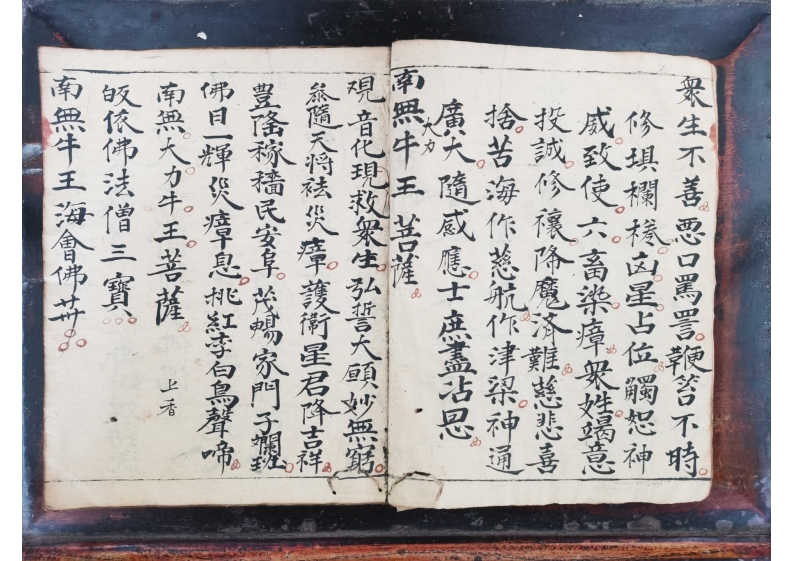 衆生不善悪口罵詈鞭笞不時
修填欄棬凶星占位觸恕神
威致使六畜染瘴衆姓竭意
投誠修禳降魔済難慈悲喜
捨苦海作慈航作津梁神通
廣大隨感應士庶盡沾恩
南無大力牛王菩薩
覌音化現救衆生弘誓大願妙無窮
叅隨天将袪災瘴護衛星君降吉祥
豊隆稼穡民安阜茂暢家門子斕斑
佛日一輝災瘴息桃紅李白鳥聲啼
南無大力牛王菩薩
上香
皈依佛法僧三寶
南無牛王海會佛卄